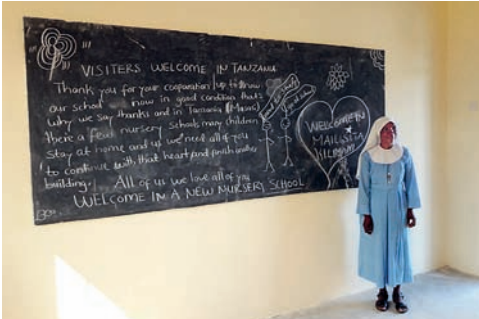 VISITERS WELCOME IN TANZANIA
Thank you for your cooperation up to now
our school now in good condition that's
why we say thanks and in Tanzania
there a few nursery schools many children
stay at home and us we need all of you
to continue with that heart and finish another
building. All of us we love all of you
WELCOME IN A NEW NURSERY SCHOOL
WELCOME IN